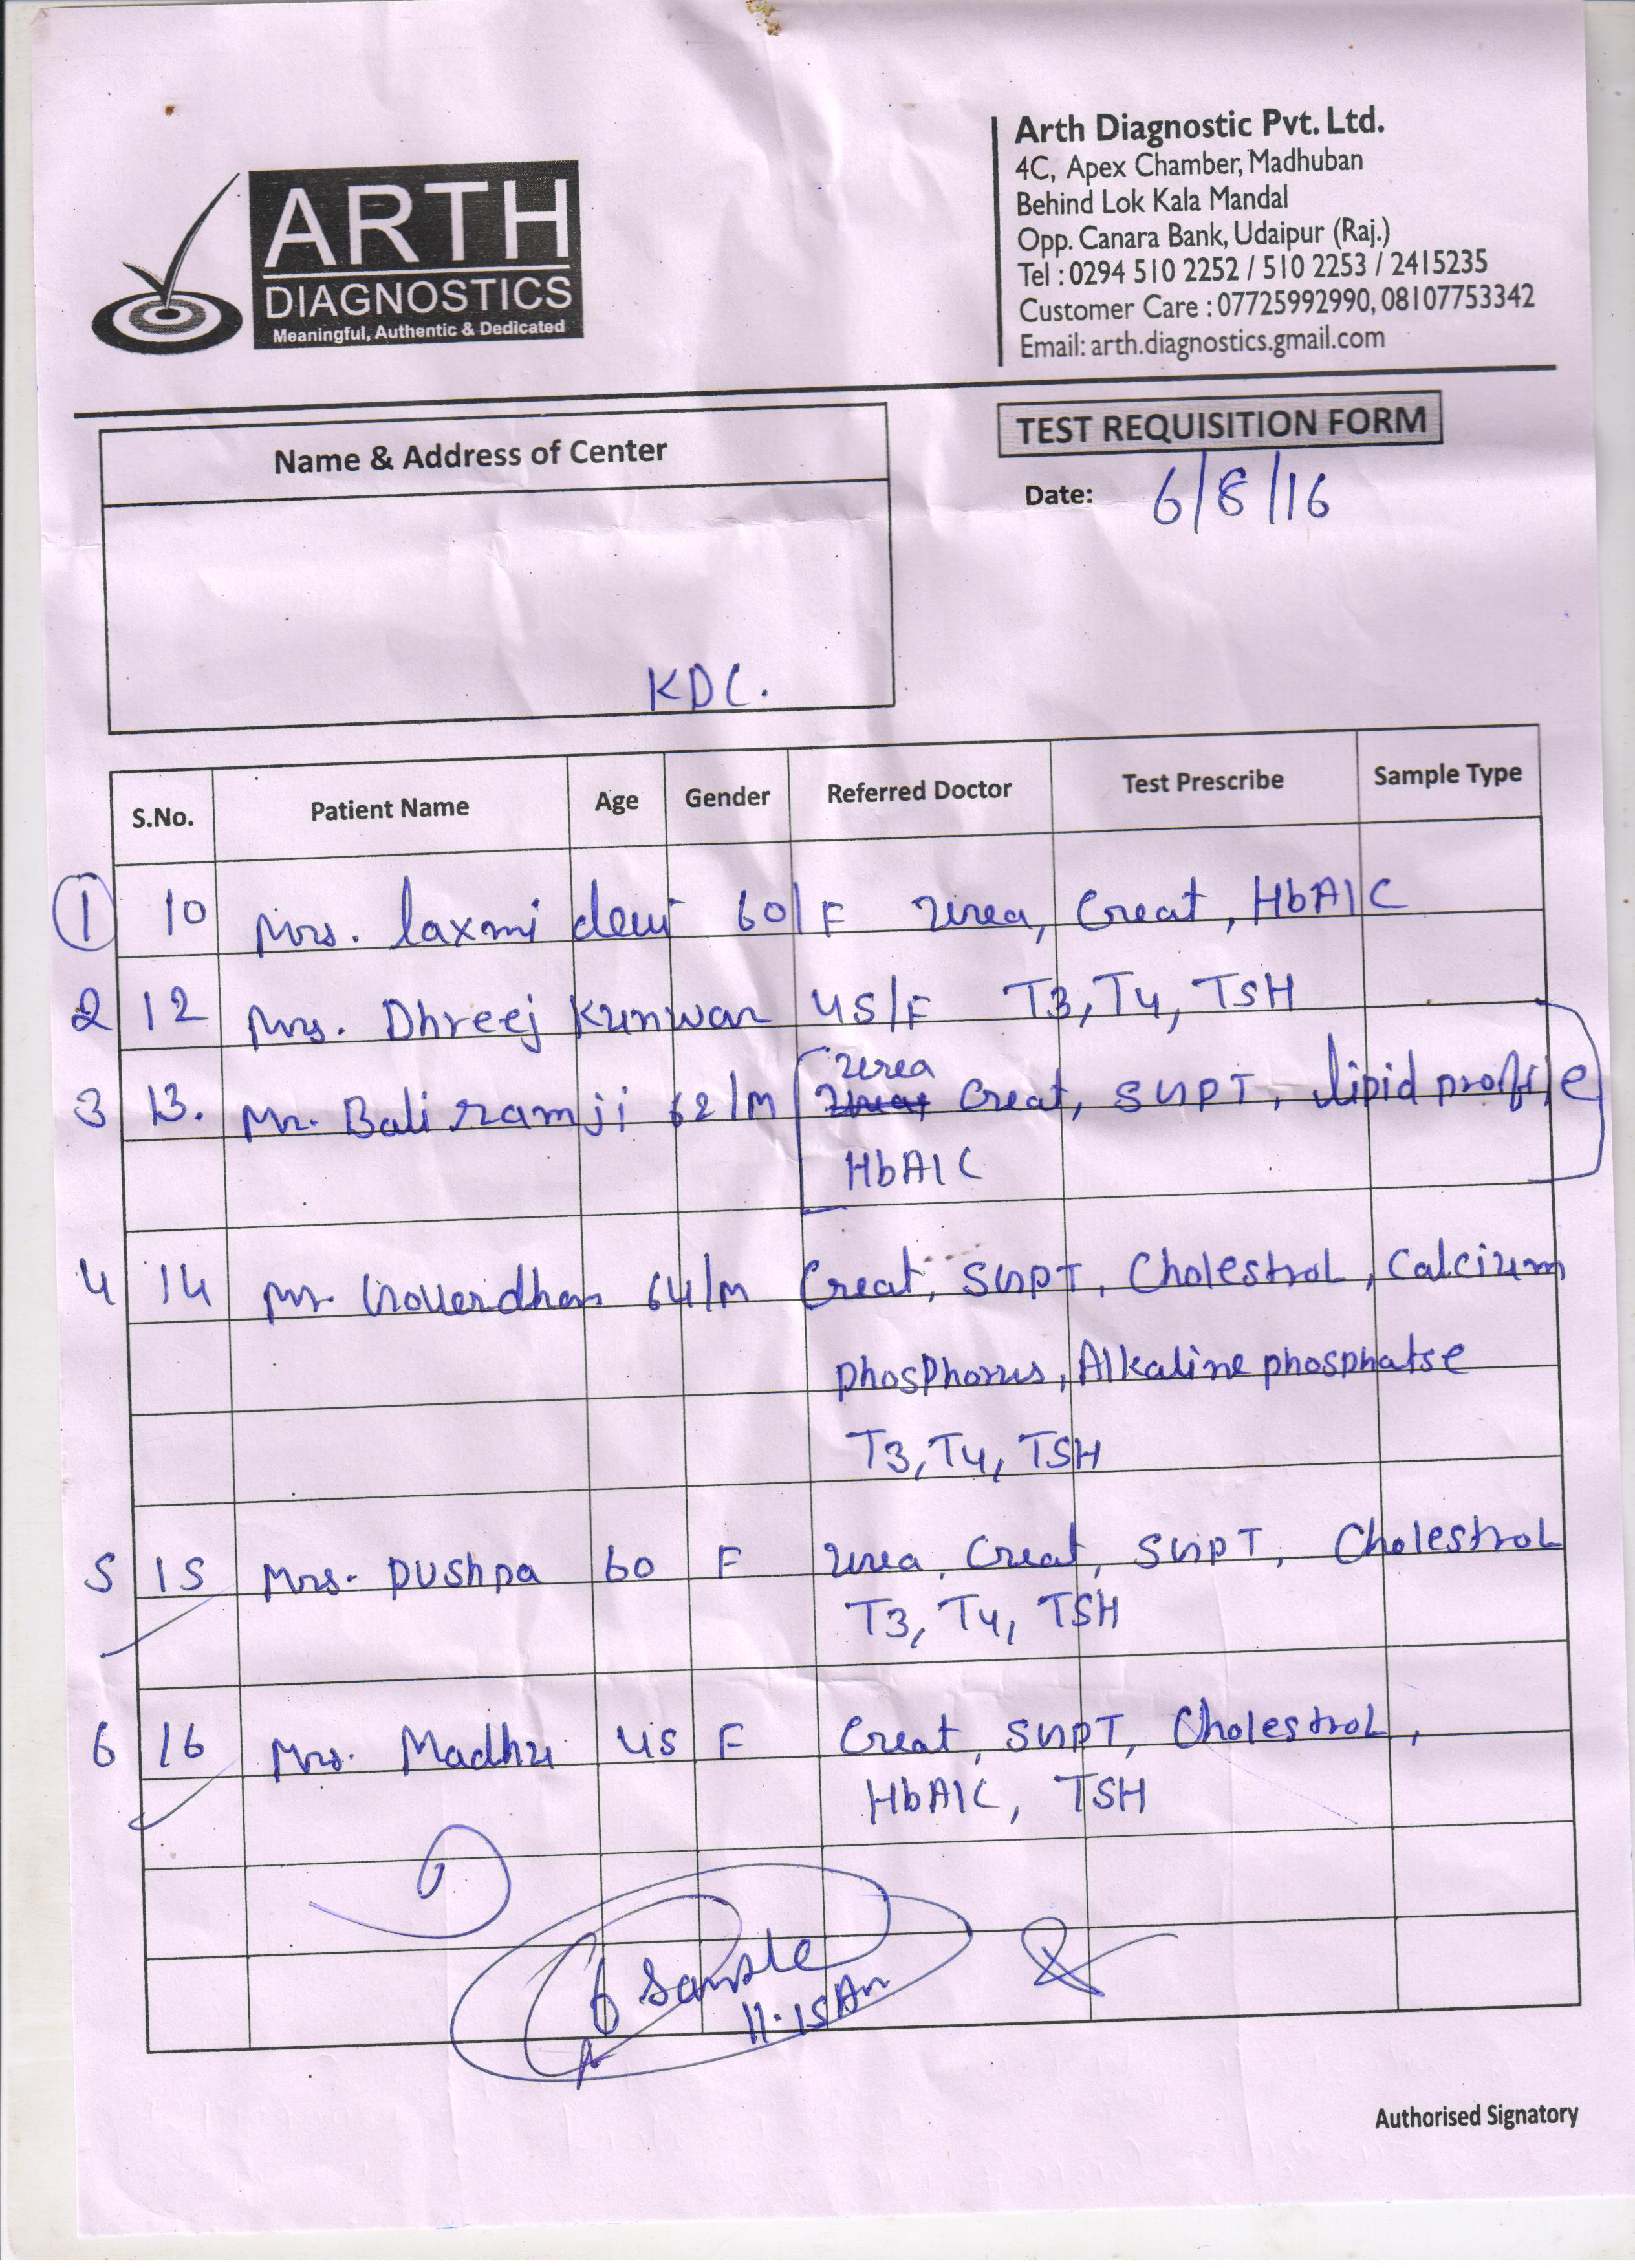 ARTH
DIAGNOSTICS
Meaningful, Authentic & Dedicated
Arth Diagnostic Pvt. Ltd.
4C, Apex Chamber, Madhuban
Behind Lok Kala Mandal
Opp. Canara Bank, Udaipur (Raj.)
Tel : 0294 510 2252 / 510 2253 / 2415235
Customer Care : 07725992990, 08107753342
Email: arth.diagnostics.gmail.com
Name & Address of Center
KDC.
TEST REQUISITION FORM
Date: 6/8/16
S.No. Patient Name Age Gender Referred Doctor Test Prescribe Sample Type
1 10 Mrs. laxmi devi 60/F Urea, Creat, HbA1C
2 12 Mrs. Dhreej Kunwar 45/F T3, T4, TSH
Urea
3 13. Mr. Bali ramji 62/M Creat, SGPT, lipid profile
HbA1C
4 14 Mr. Goverdhan 64/M Creat, SGPT, Cholestrol, Calcium
phosphorus, Alkaline phosphatse
T3, T4, TSH
5 15 Mrs. Pushpa 60 F Urea, Creat, SGPT, Cholestrol
T3, T4, TSH
6 16 Mrs. Madhu 45 F Creat, SGPT, Cholestrol,
HbA1C, TSH
6 Sample
11.15 Am
Authorised Signatory